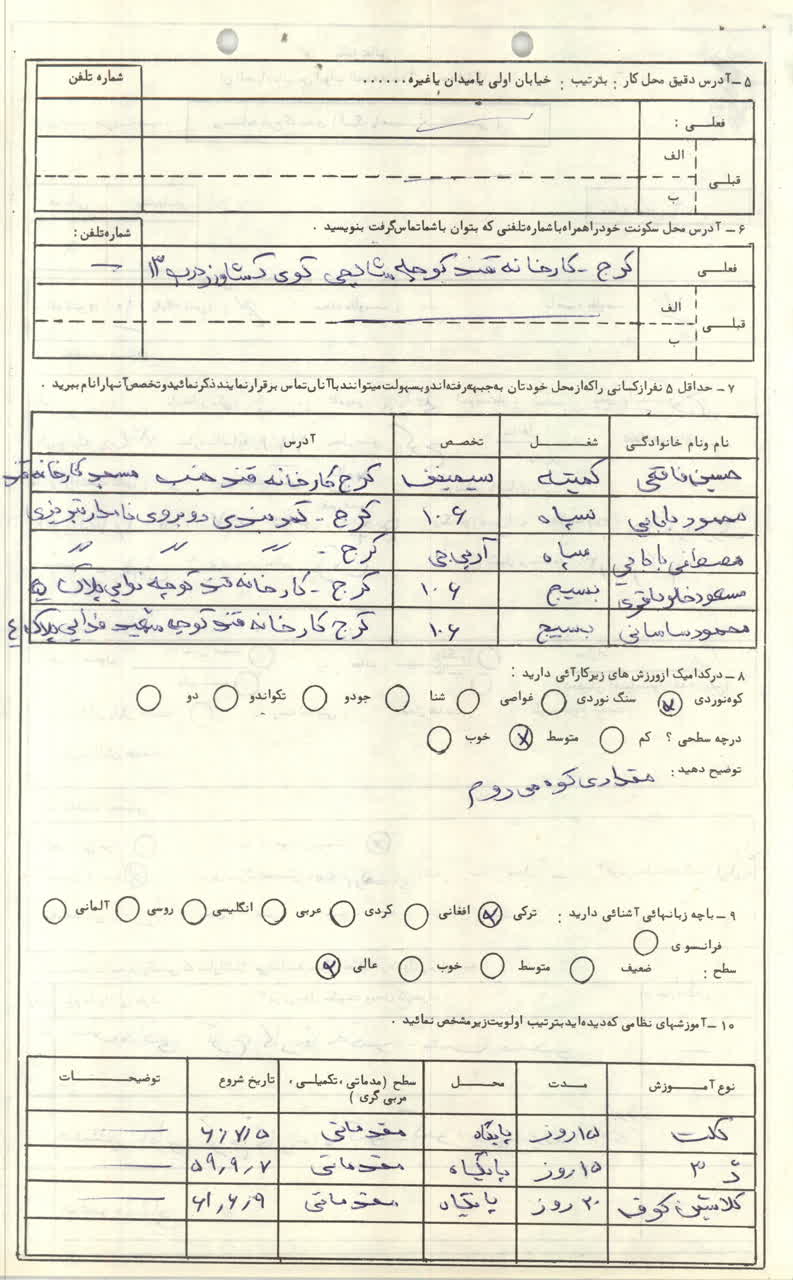 ۵ – آدرس دقیق محل کار : بترتیب : خیابان اولی یا میدان یاغیره......
شماره تلفن
فعلـــی :
قبلـی
الف
ب
۶ – آدرس محل سکونت خود را همراه با شماره تلفنی که بتوان با شما تماس گرفت بنویسید .
شماره تلفن :
فعلــی کرج - کارخانه قند کوچه کوی کشاورز درب ۱۳ —
قبلـی
الف
ب
۷ – حداقل ۵ نفر از کسانی را که از محل خودتان به جبهه رفته اند و بسهولت میتوانند با آنان تماس برقرار نمایند ذکر نمائید و تخصص آنها را نام ببرید .
نام ونام خانوادگـی شغـــل تخصـص آدرس
حسین کمیته سیمینف کرج کارخانه قند جنب مسجد کارخانه قند
محمود بابایی سپاه ۱۰۶ کرج - روبروی تبریزی
مصطفی بابایی سپاه آرپی جی کرج - 〃 〃 〃
مسعود بسیج ۱۰۶ کرج - کارخانه قند کوچه پلاک ۵
محمود ساسانی بسیج ۱۰۶ کرج کارخانه قند کوچه شهید فدایی پلاک ٤
۸ – درکدامیک از ورزش های زیر کارآئی دارید :
کوه نوردی سنگ نوردی غواصی شنا جودو تکواندو دو
درچه سطحی ؟ کم متوسط خوب
توضیح دهید : مقداری کوه می روم
۹ – باچه زبانهائی آشنائی دارید : ترکی افغانی کردی عربی انگلیسی روسی آلمانی
فرانسوی
سطح : ضعیف متوسط خوب عالی
۱۰ – آموزشهای نظامی که دیده اید بترتیب اولویت زیر مشخص نمائید .
نوع آمــوزش مــدت محــل سطح (مقدماتی ، تکمیلی ، مربی گری ) تاریخ شروع توضیحـــات
کلت ۱۵ روز پایگاه مقدماتی —
ژ ۳ ۱۵ روز پایگاه مقدماتی ۵۹,۹,۷ —
کلاشین کوف ۲۰ روز پایگاه مقدماتی ۶۱,۶,۹ —